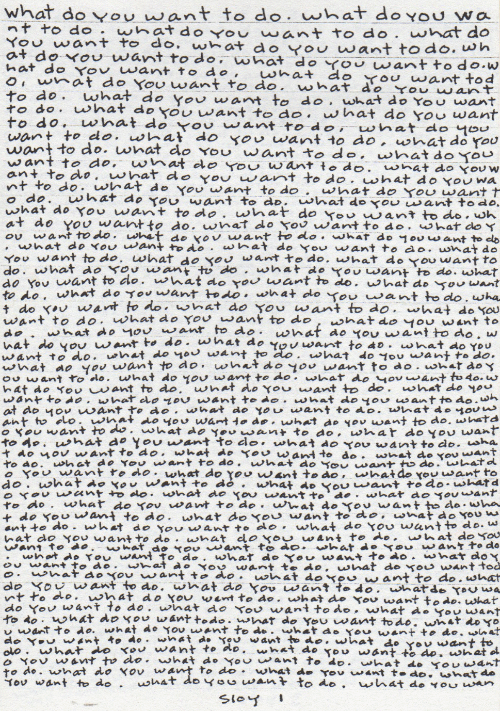 what do you want to do. what do you wa
nt to do. what do you want to do. what do
you want to do. what do you want to do. wh
at do you want to do. what do you want to do. w
hat do you want to do. what do you want to d
o. what do you want to do. what do you want
to do. what do you want to do. what do you want
to do. what do you want to do. what do you want
to do. what do you want to do. what do you
want to do. what do you want to do. what do you
want to do. what do you want to do. what do you
want to do. what do you want to do. what do you w
ant to do. what do you want to do. what do you wa
nt to do. what do you want to do. what do you want t
o do. what do you want to do. what do you want to do.
what do you want to do. what do you want to do. wh
at do you want to do. what do you want to do. what do y
ou want to do. what do you want to do. what do you want to do
. what do you want to do. what do you want to do. what do
you want to do. what do you want to do. what do you want to
do. what do you want to do. what do you want to do. what
do you want to do. what do you want to do. what do you want
to do. what do you want to do. what do you want to do. wha
t do you want to do. what do you want to do. what do you
want to do. what do you want to do. what do you want to
do. what do you want to do. what do you want to do. w
hat do you want to do. what do you want to do. what do you
want to do. what do you want to do. what do you want to do.
what do you want to do. what do you want to do. what do y
ou want to do. what do you want to do. what do you want to do. w
hat do you want to do. what do you want to do. what do you
want to do. what do you want to do. what do you want to do. wh
at do you want to do. what do you want to do. what do you w
ant to do. what do you want to do. what do you want to do. what d
o you want to do. what do you want to do. what do you want
to do. what do you want to do. what do you want to do. wha
t do you want to do. what do you want to do. what do you want
to do. what do you want to do. what do you want to do. what d
o you want to do. what do you want to do. what do you want to
do. what do you want to do. what do you want to do. what d
o you want to do. what do you want to do. what do you want t
o do. what do you want to do. what do you want to do. wha
t do you want to do. what do you want to do. what do you w
ant to do. what do you want to do. what do you want to do. w
hat do you want to do. what do you want to do. what do you
want to do. what do you want to do. what do you want to do
. what do you want to do. what do you want to do. what do y
ou want to do. what do you want to do. what do you want to d
o. what do you want to do. what do you want to do. what
do you want to do. what do you want to do. what do you wa
nt to do. what do you want to do. what do you want to do. what
do you want to do. what do you want to do. what do you want
to do. what do you want to do. what do you want to do. what do yo
u want to do. what do you want to do. what do you want to do. wha
t do you want to do. what do you want to do. what do you want to
do. what do you want to do. what do you want to do. what d
o you want to do. what do you want to do. what do you want
to do. what do you want to do. what do you want to do. what do
you want to do. what do you want to do. what do you wan
Sloy 1